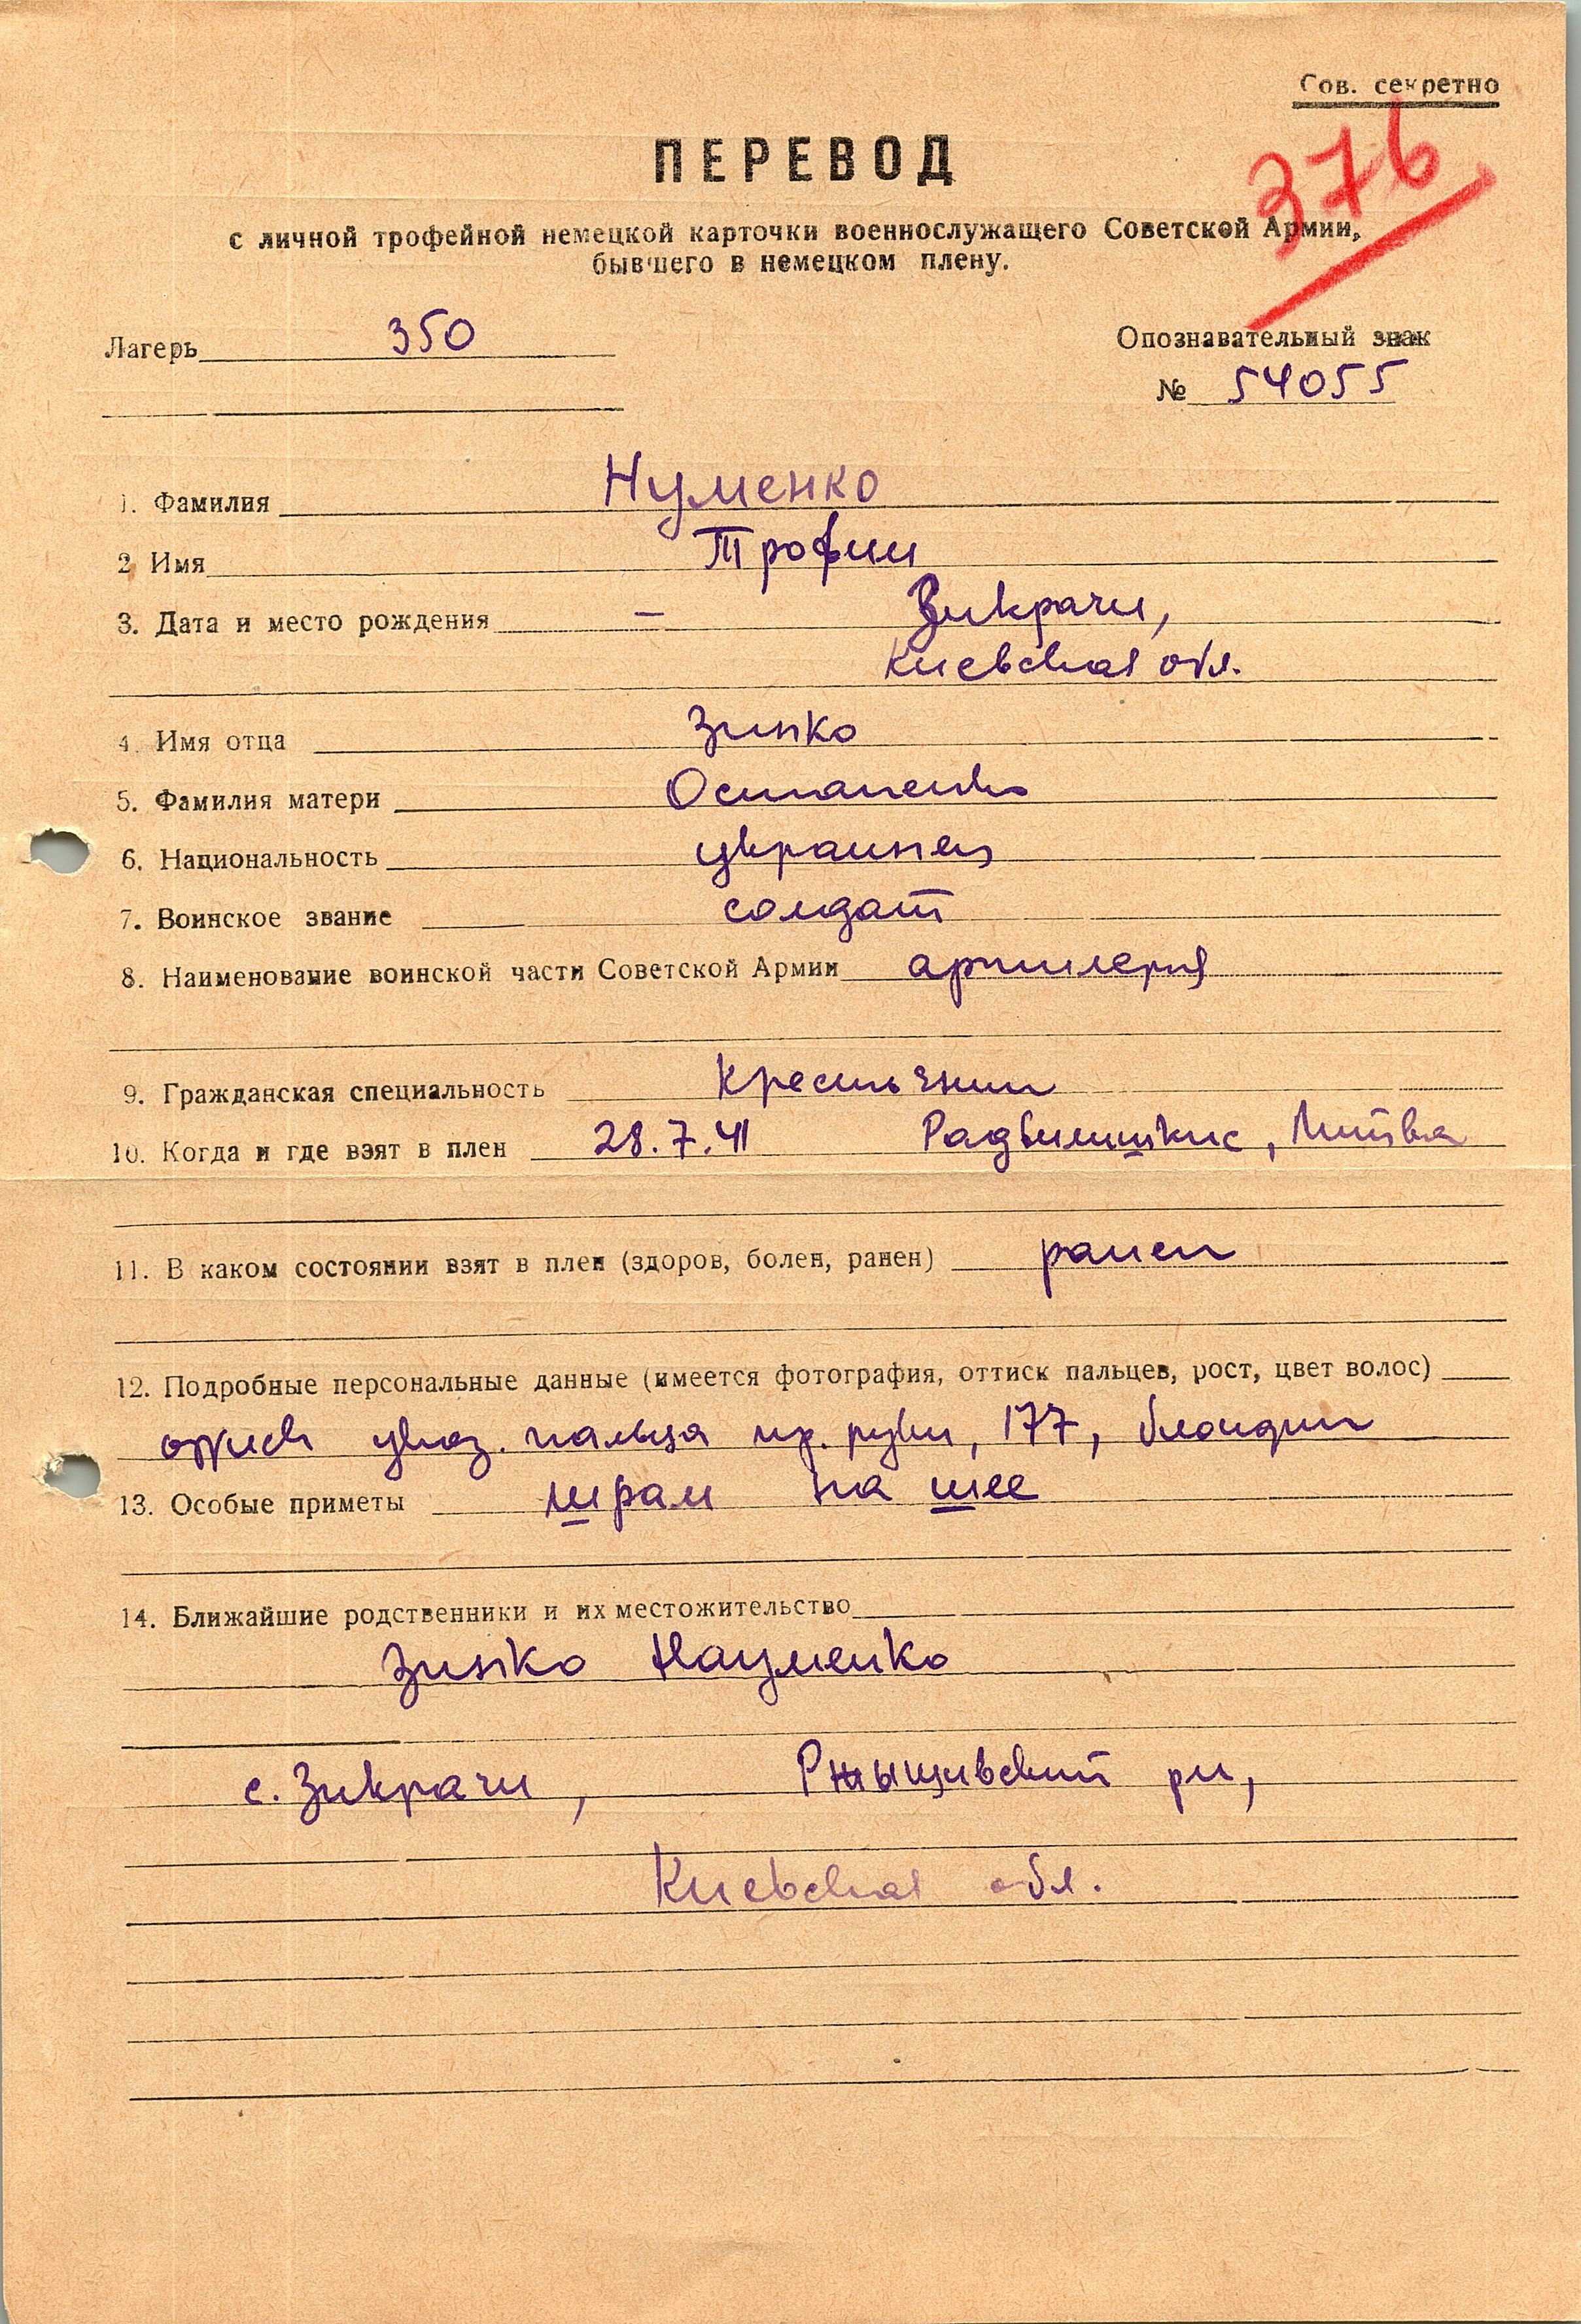 Сов. секретно
376
ПЕРЕВОД
с личной трофейной немецкой карточки военнослужащего Советской Армии,
бывшего в немецком плену.
Лагерь 350
Опознавательный знак
№ 54055
1. Фамилия Нуменко
2 Имя Трофим
3. Дата и место рождения — Зикрачи,
Киевская обл.
4. Имя отца Зинко
5. Фамилия матери Остапенко
6. Национальность украинец
7. Воинское звание солдат
8. Наименование воинской части Советской Армии артилерия
9. Гражданская специальность Крестьянин
10. Когда и где взят в плен 28.7.41 Радвилишкис, Литва
11. В каком состоянии взят в плен (здоров, болен, ранен) ранен
12. Подробные персональные данные (имеется фотография, оттиск пальцев, рост, цвет волос)
указ. пальца пр. руки, 177, блондин
13. Особые приметы шрам на шее
14. Ближайшие родственники и их местожительство
Зинко Науменко
с. Зикрачи, Ржыщивский рн,
Киевская обл.